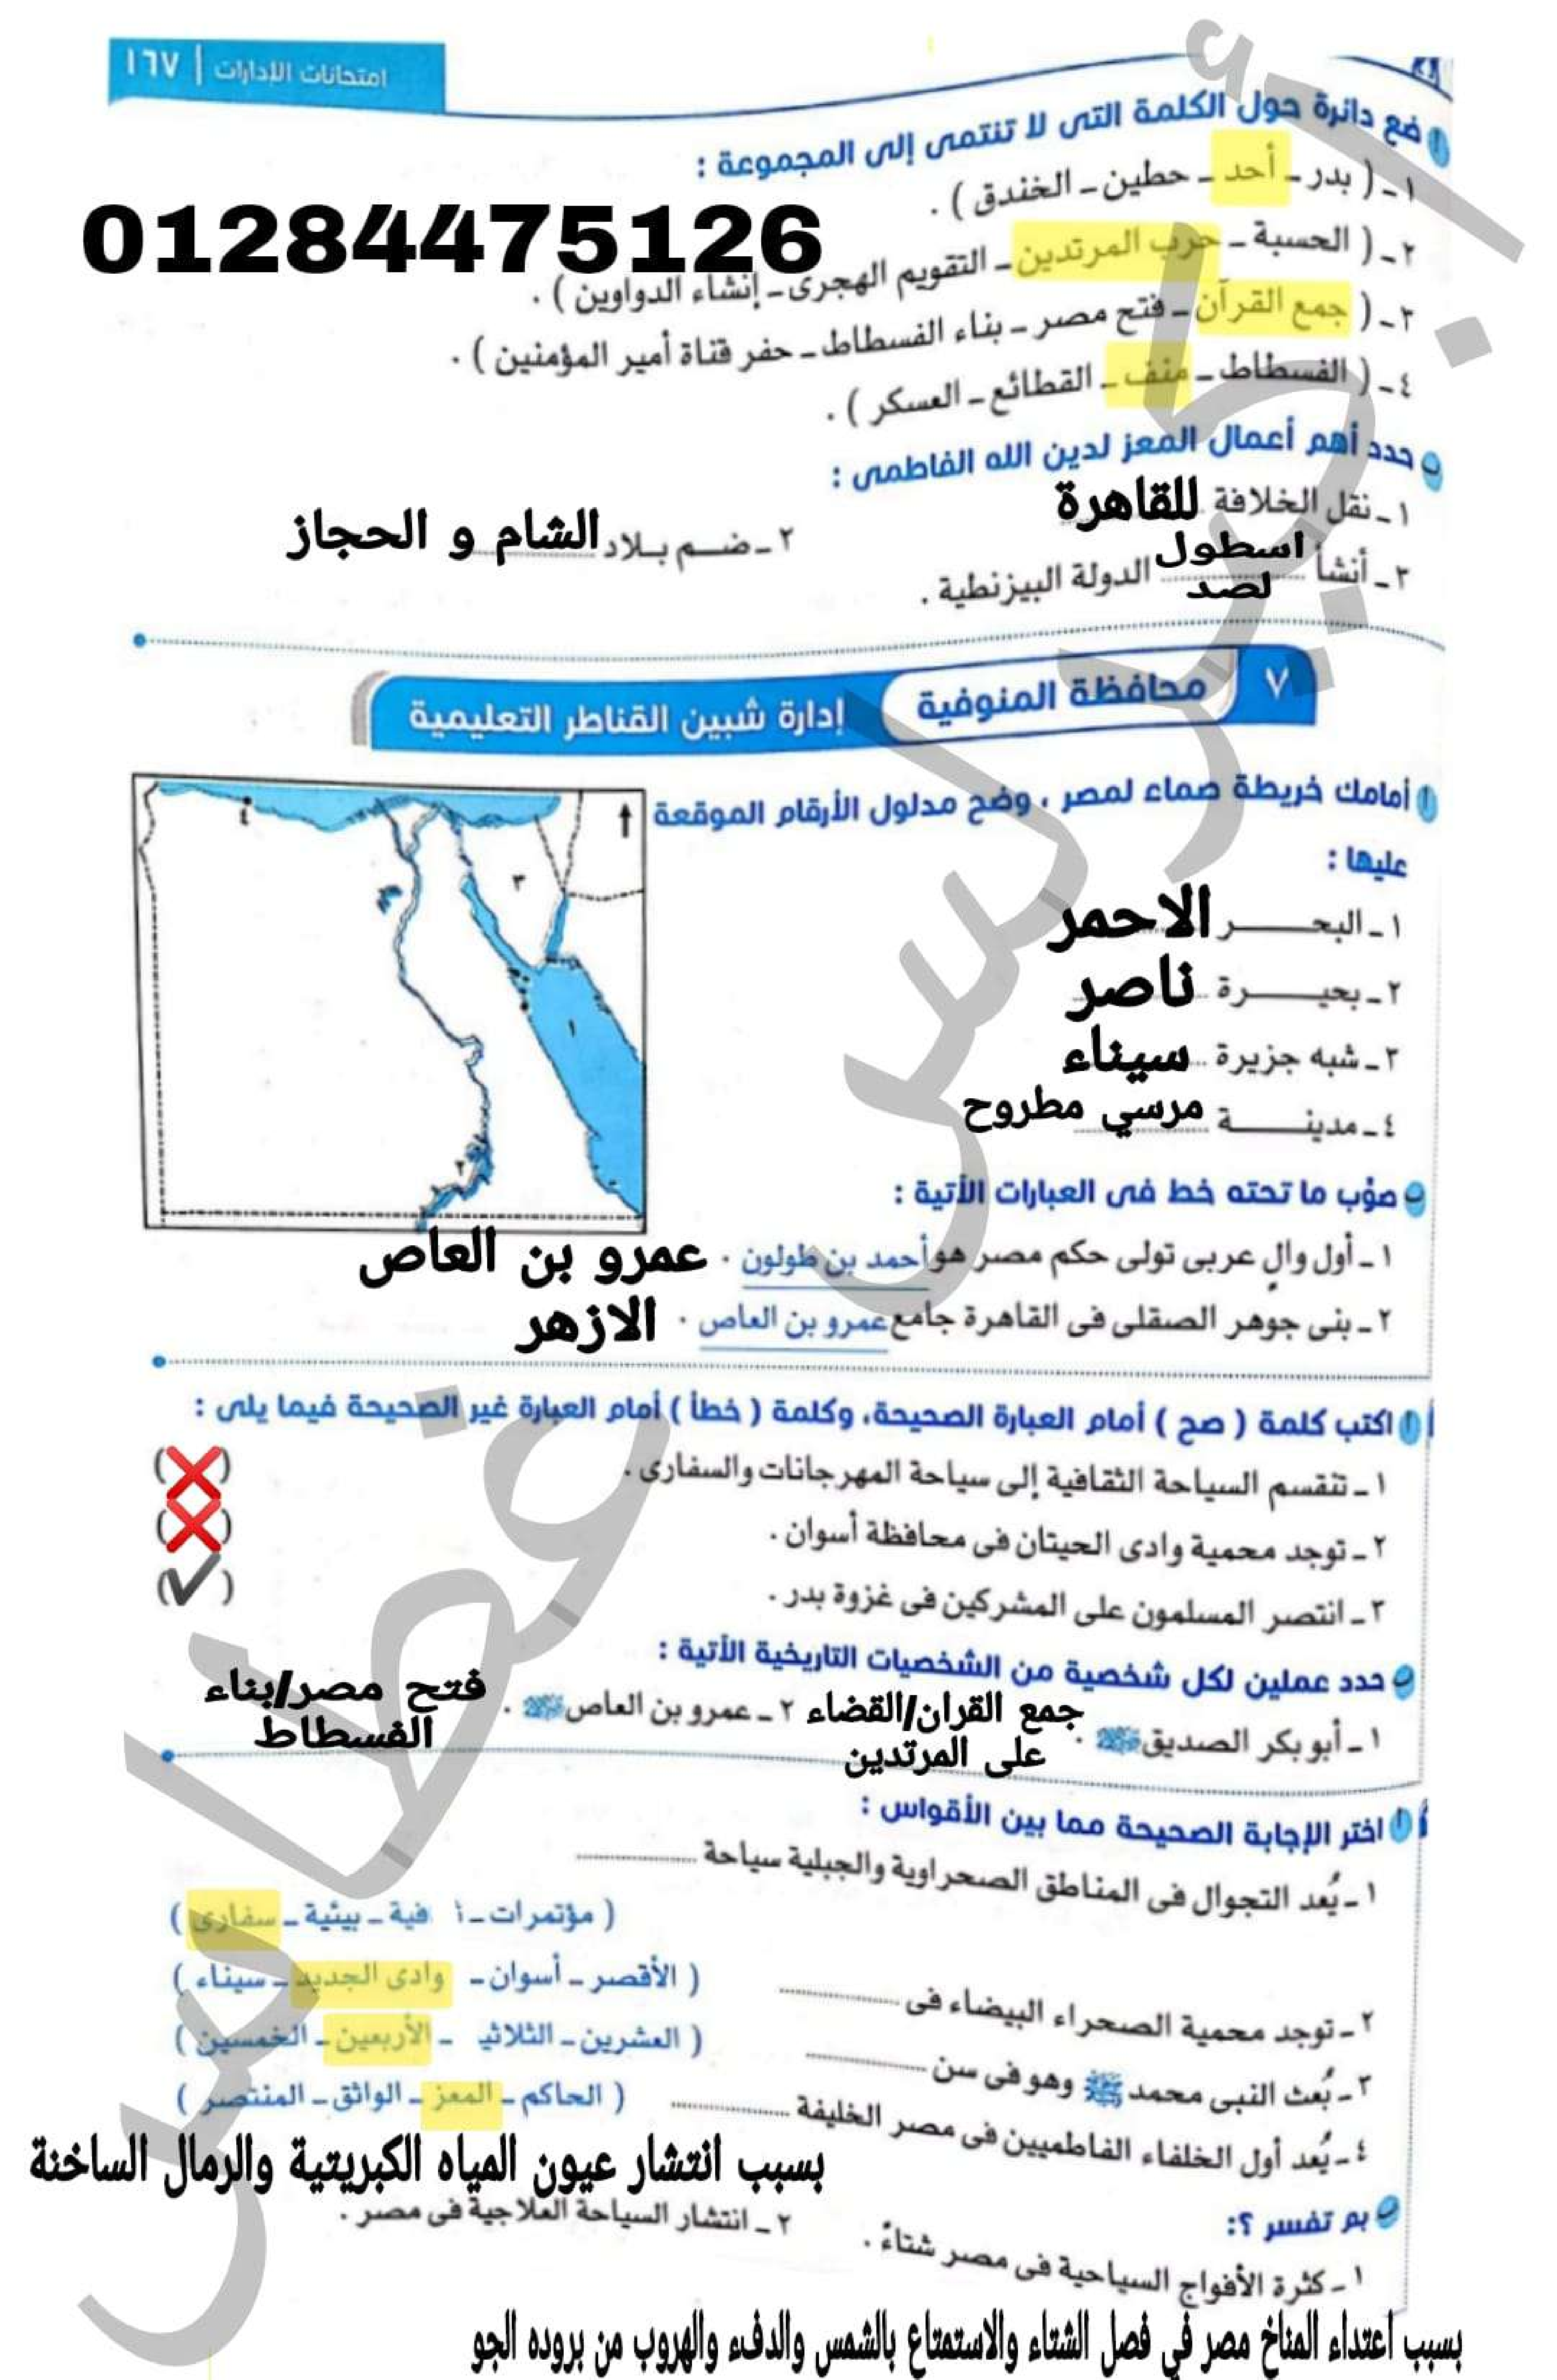 امتحانات الإدارات | ١٦٧
ضع دائرة حول الكلمة التى لا تنتمى إلى المجموعة :
١ ـ ( بدر ـ أحد ـ حطين ـ الخندق ) .
01284475126
٢ ـ ( الحسبة ـ حرب المرتدين ـ التقويم الهجرى ـ إنشاء الدواوين ) .
٣ ـ ( جمع القرآن ـ فتح مصر ـ بناء الفسطاط ـ حفر قناة أمير المؤمنين ) .
٤ ـ ( الفسطاط ـ منف ـ القطائع ـ العسكر ) .
ب حدد أهم أعمال المعز لدين الله الفاطمى :
١ ـ نقل الخلافة للقاهرة
٢ ـ ضم بلاد الشام و الحجاز
٣ ـ أنشأ اسطول لصد الدولة البيزنطية .
٧ محافظة المنوفية إدارة شبين القناطر التعليمية
أ أمامك خريطة صماء لمصر ، وضح مدلول الأرقام الموقعة
عليها :
١ ـ البحر الاحمر
٢ ـ بحيرة ناصر
٣ ـ شبه جزيرة سيناء
٤ ـ مدينة مرسي مطروح
٤
٣
١
٢
ب صوّب ما تحته خط فى العبارات الآتية :
١ ـ أول والٍ عربى تولى حكم مصر هو أحمد بن طولون . عمرو بن العاص
٢ ـ بنى جوهر الصقلى فى القاهرة جامع عمرو بن العاص . الازهر
أ اكتب كلمة ( صح ) أمام العبارة الصحيحة، وكلمة ( خطأ ) أمام العبارة غير الصحيحة فيما يلى :
١ ـ تنقسم السياحة الثقافية إلى سياحة المهرجانات والسفارى . (❌)
٢ ـ توجد محمية وادى الحيتان فى محافظة أسوان . (❌)
٣ ـ انتصر المسلمون على المشركين فى غزوة بدر . (✔)
ب حدد عملين لكل شخصية من الشخصيات التاريخية الآتية :
١ ـ أبو بكر الصديق . جمع القران/القضاء
على المرتدين
٢ ـ عمرو بن العاص . فتح مصر/بناء
الفسطاط
أ اختر الإجابة الصحيحة مما بين الأقواس :
١ ـ يُعد التجوال فى المناطق الصحراوية والجبلية سياحة
( مؤتمرات ـ فية ـ بيئية ـ سفارى )
٢ ـ توجد محمية الصحراء البيضاء فى
( الأقصر ـ أسوان ـ وادى الجديد ـ سيناء )
٣ ـ بُعث النبى محمد ﷺ وهو فى سن
( العشرين ـ الثلاثي ـ الأربعين ـ الخمسين )
٤ ـ يُعد أول الخلفاء الفاطميين فى مصر الخليفة
( الحاكم ـ المعز ـ الواثق ـ المنتصر )
بسبب انتشار عيون المياه الكبريتية والرمال الساخنة
ب بم تفسر ؟:
١ ـ كثرة الأفواج السياحية فى مصر شتاءً .
٢ ـ انتشار السياحة العلاجية فى مصر .
بسبب اعتداء المناخ مصر في فصل الشتاء والاستمتاع بالشمس والدفء والهروب من بروده الجو
أ. كيرلس غطاس